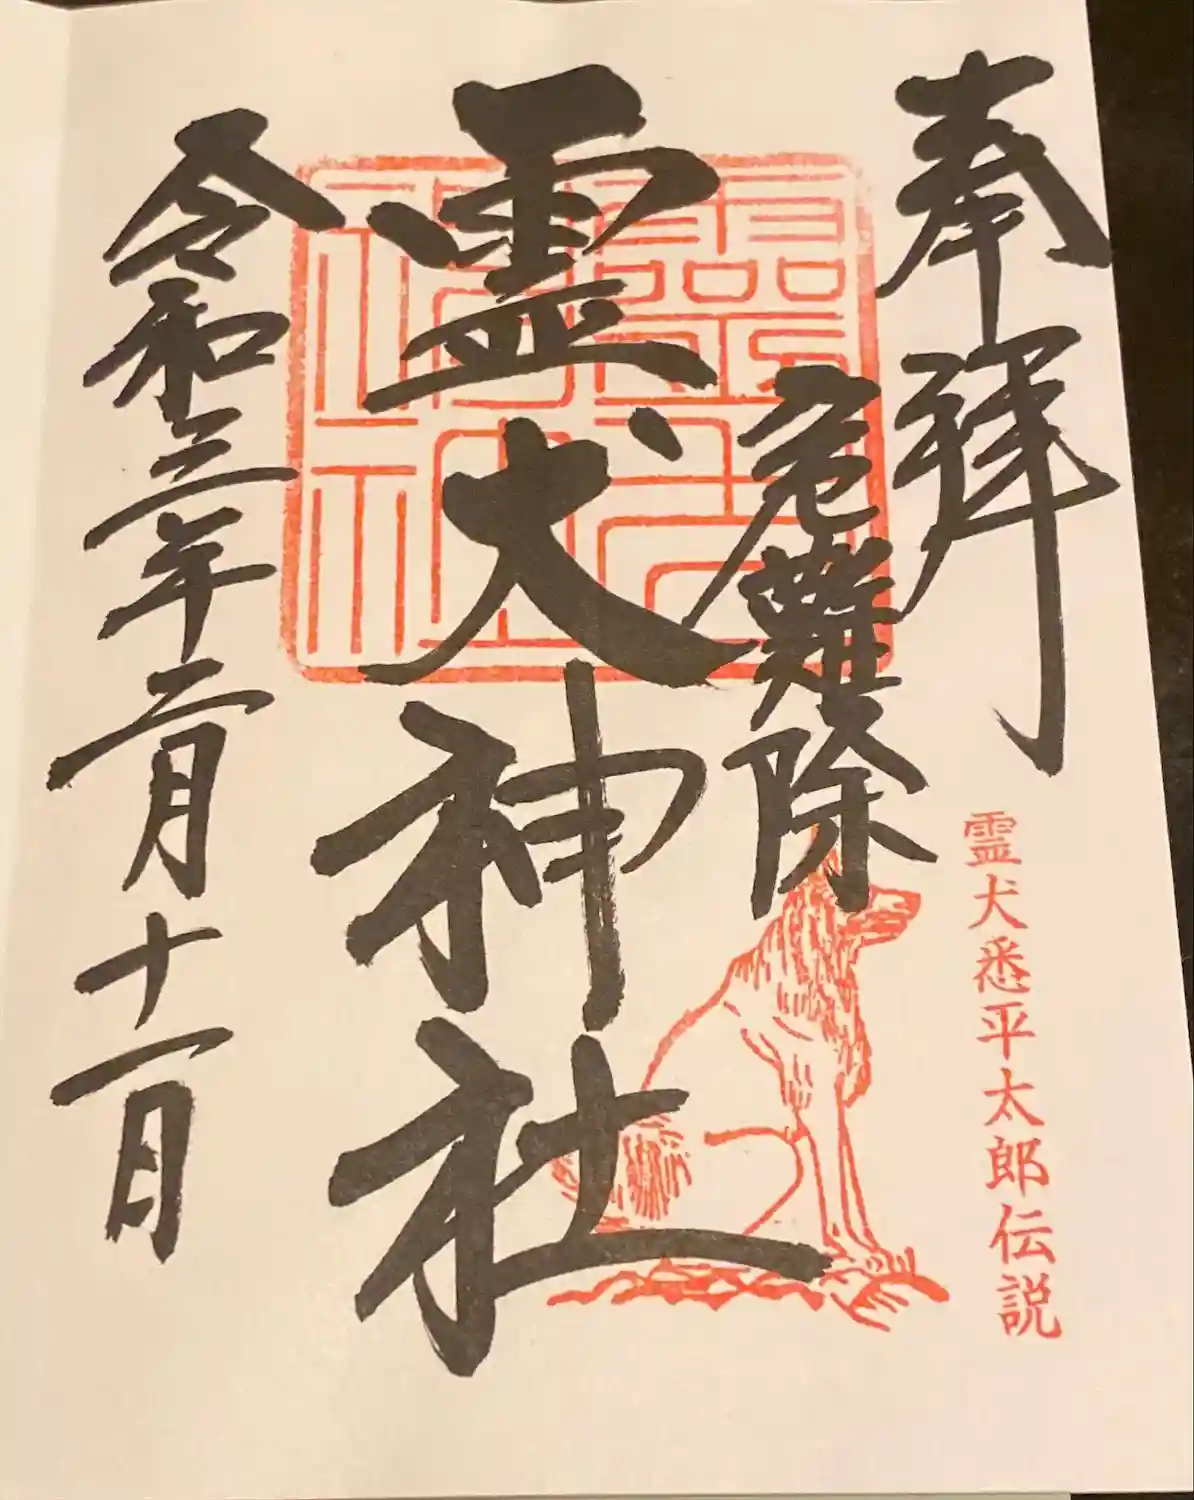 奉拝
霊犬悉平太郎伝説
危難除
霊犬神社
令和三年二月十一日